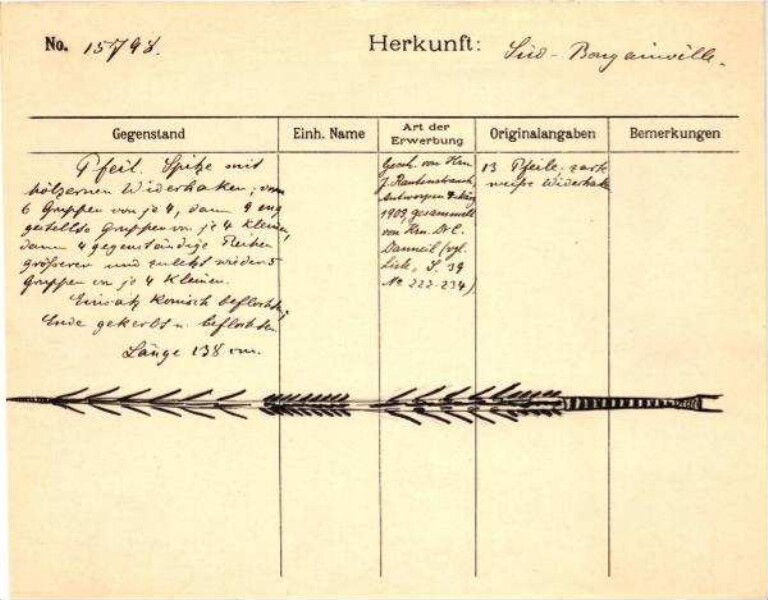 No. 15798.
Herkunft: Süd-Bougainville.
Gegenstand
Einh. Name
Art der Erwerbung
Originalangaben
Bemerkungen
Pfeil. Spitze mit
hölzernen Widerhaken; vorn
6 Gruppen von je 4, dann 9 eng
gestellte Gruppen von je 4 kleinen,
dann 4 gegenständige Reihen
größerer und zuletzt wieder 5
Gruppen von je 4 kleinen.
Einsatz konisch beflochten;
Ende gekerbt u. beflochten.
Länge 138 cm.
Gesch. von Hrn
J. Rautenstrauch,
Antwerpen
1903, gesammelt
von Hrn. Dr C.
Danneil (vgl.
Liste, S. 39
No 222-234)
13 Pfeile, stark
weiße Widerhak